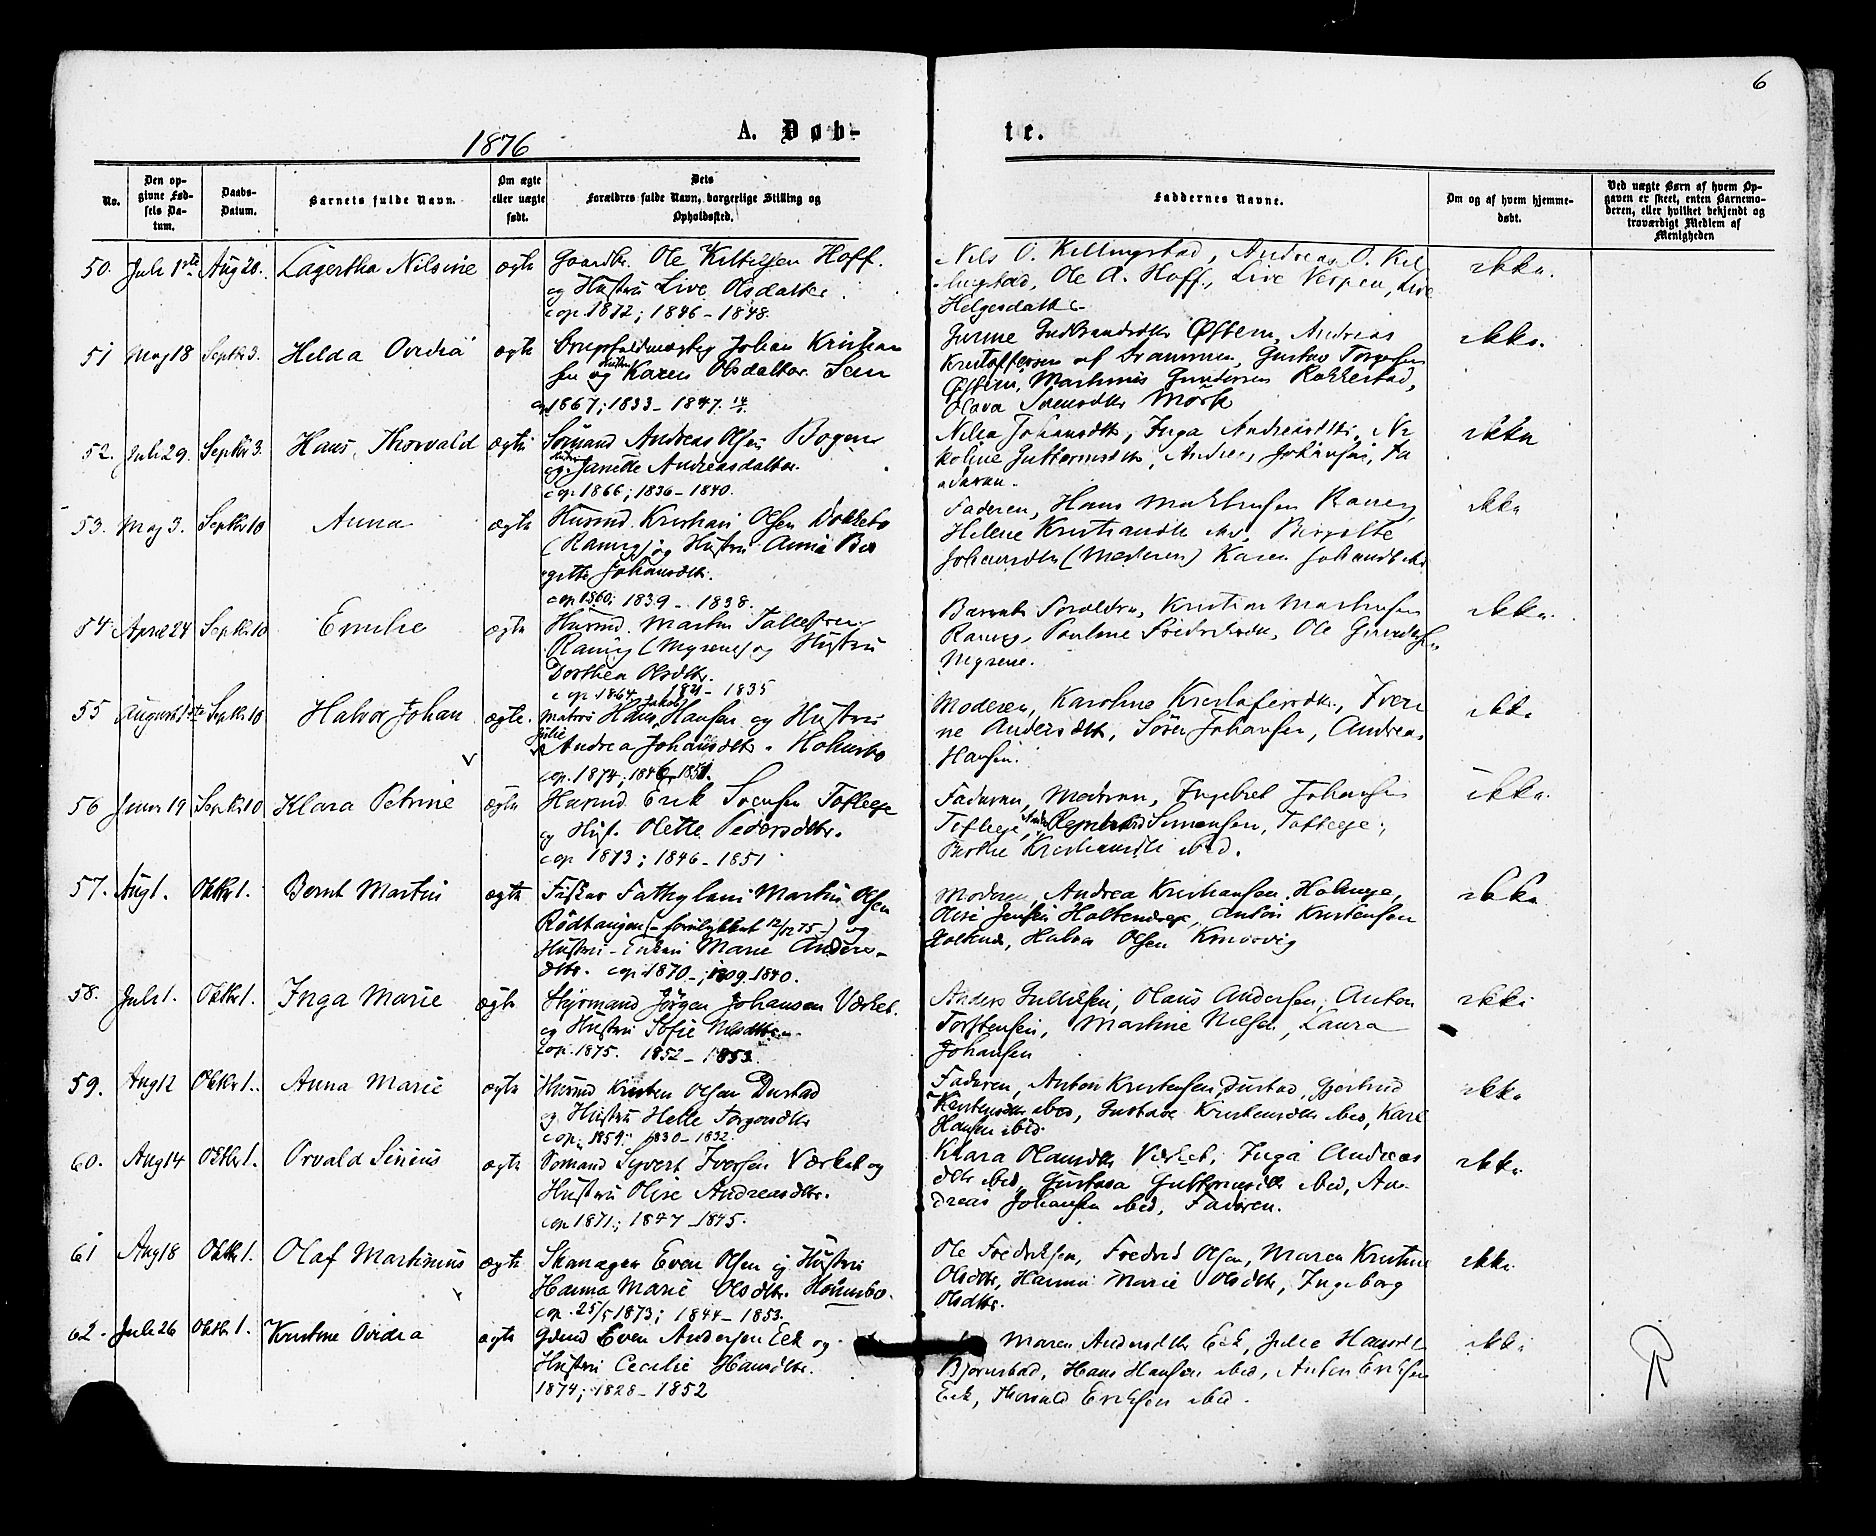 6
1876 A. Døb- te.
No.
Den op-
givne Fød-
sels Da-
tum.
Daabs-
Datum.
Barnets fulde Navn.
Om ægte
eller uægte
født.
Dets
Forældres fulde Navn, borgerlige Stilling og
Opholdssted.
Faddernes Navne.
Om og af hvem hjemme-
døbt.
Ved uægte Børn af hvem Op-
gaven er skeet, enten Barnemo-
deren, eller hvilket bekjendt og
troværdigt Medlem af
Menigheden
50. Juli 1ste Aug 20. Lagertha Nilsine ægte Gaardbr. Ole Kittilsen Hoff.
og Hustru Live Olsdatter
cop. 1872; 1846 - 1848.
Nils O. Killingstad, Andreas O. Kil-
lingstad, Ole A. Hoff, Live Vespen, Live
Helgesdatter
ikke.
51 Maj 18 Septbr 3. Hilda Ovidia ægte Johan Kristian
sen og Hustru Karen Olsdatter Sem
1867; 1833 - 1847.
Gudbrandsdtr Østern, Andreas
Kristoffersen af Drammen, Gustav Torgersen
Østern, Mathinus Gundersen Rakkestad,
Olava Svensdtr Mørk
ikke.
52. Juli 29. Septbr 3. Hans Thorvald ægte Sømand Andreas Olsen Bogen
og Hustru Janette Andreasdatter.
cop. 1866; 1836 - 1840.
Nilea Johansdtr, Inga Andreasdtr, Ni
koline Guttormsdtr, Andreas Johansen, Fa
deren.
ikke
53. Maj 3. Septbr 10 Anna ægte Husmd. Kristian Olsen Dokkebo
(Ranvig) og Hustru Anna Bir
gitte Johansdtr.
cop. 1860; 1839 - 1838.
Faderen, Hans Mathisen Ranvig,
Helene Kristiansdtr ibid, Birgitte
Johannsdtr (Moderen) Karen Johansdtr ibid
ikke
54. April 24 Septbr 10 Emilie ægte Husmd. Martin Tallefsen
Ranvig (Myrene) og Hustru
Dorthea Olsdtr.
cop. 1864 - 1821 - 1835
Barnets Forældre, Kristian Mathisen
Ranvig, Pauline Fredriksdtr, Ole Gundersen
Myrene.
ikke.
55 August 1ste Septbr 10 Halvor Johan ægte. Matros Hans Jakob Hansen og Hustru
Julie Andrea Johansdtr. Holmsbo
cop. 1874; 1846 - 1851.
Moderen, Karoline Kristofersdtr, Iveri
ne Andersdtr, Søren Johansen, Andreas
Hansen.
ikke
56 Juni 19 Septbr 10 Klara Petrine ægte Husmd. Erik Svensen Tofteeje
og Hust. Olette Pedersdtr.
cop 1873; 1846 - 1851
Faderen, Moderen, Ingebret Johansen
Tofteeje, Simensen, Tofteeje,
Berthe Kristiansdtr ibid.
ikke.
57. Aug 1. Oktbr 1. Bernt Martin ægte Fisker Martin Olsen
Rødtangen (- forulykket 12/12 75 -) og
Hustru - Enken Marie Anders-
dtr. cop 1870 -; 1809 - 1840.
Moderen, Andrea Kristiansen, Holmeje,
Olise Jensen Holteneje, Anton Kristensen
Holtnes, Halvor Olsen Knivsvig
ikke
58. Juli 1. Oktbr 1. Inga Marie ægte Styrmand Jørgen Johansen Værket.
og Hustru Sofie Nilsdtr
cop. 1875. 1852 - 1853.
Anders Gulliksen, Olaus Andersen, Anton
Torstensen, Martine Nilsen, Laura
Johansen
ikke
59. Aug 12 Oktbr 1. Anna Marie ægte Husmd Kristen Olsen Dustad
og Hustru Helle Torgersdtr
cop. 1859; 1830 - 1832.
Faderen, Anton Kristensen Dustad, Gjertrud
Kristensdtr ibid, Gustava Kristensdtr ibid, Karl
Hansen ibid.
ikke
60. Aug 14 Oktbr 1. Orvald Sinius ægte Sømand Syvert Iversen Værket og
Hustru Olise Andreasdtr.
cop 1871; 1847 - 1845.
Klara Olausdtr Værket, Inga Andreas
dtr ibid, Gustava Guttormsdtr ibid, An-
dreas Johansen ibid, Faderen.
ikke
61 Aug 18 Oktbr 1. Olaf Martinius ægte Skomager Even Olsen og Hustru
Hanna Marie Olsdtr. Holmsbo.
cop. 25/5 1873; 1844 - 1853.
Ole Fredriksen, Fredrik Olsen, Maren Kristine
Olsdtr, Hanna Marie Olsdtr, Ingeborg
Olsdtr.
ikke
62. Juli 26 Oktbr 1. Kristine Ovidia ægte Gdmd Even Andersen Eek og
Hustru Cecilie Hansdtr.
1874; 1828 - 1852
Maren Andersdtr Eek, Julie Hansdtr
Bjørnstad, Hans Hansen ibid, Anton Eriksen
Eek, Thorvald Eriksen ibid.
ikke